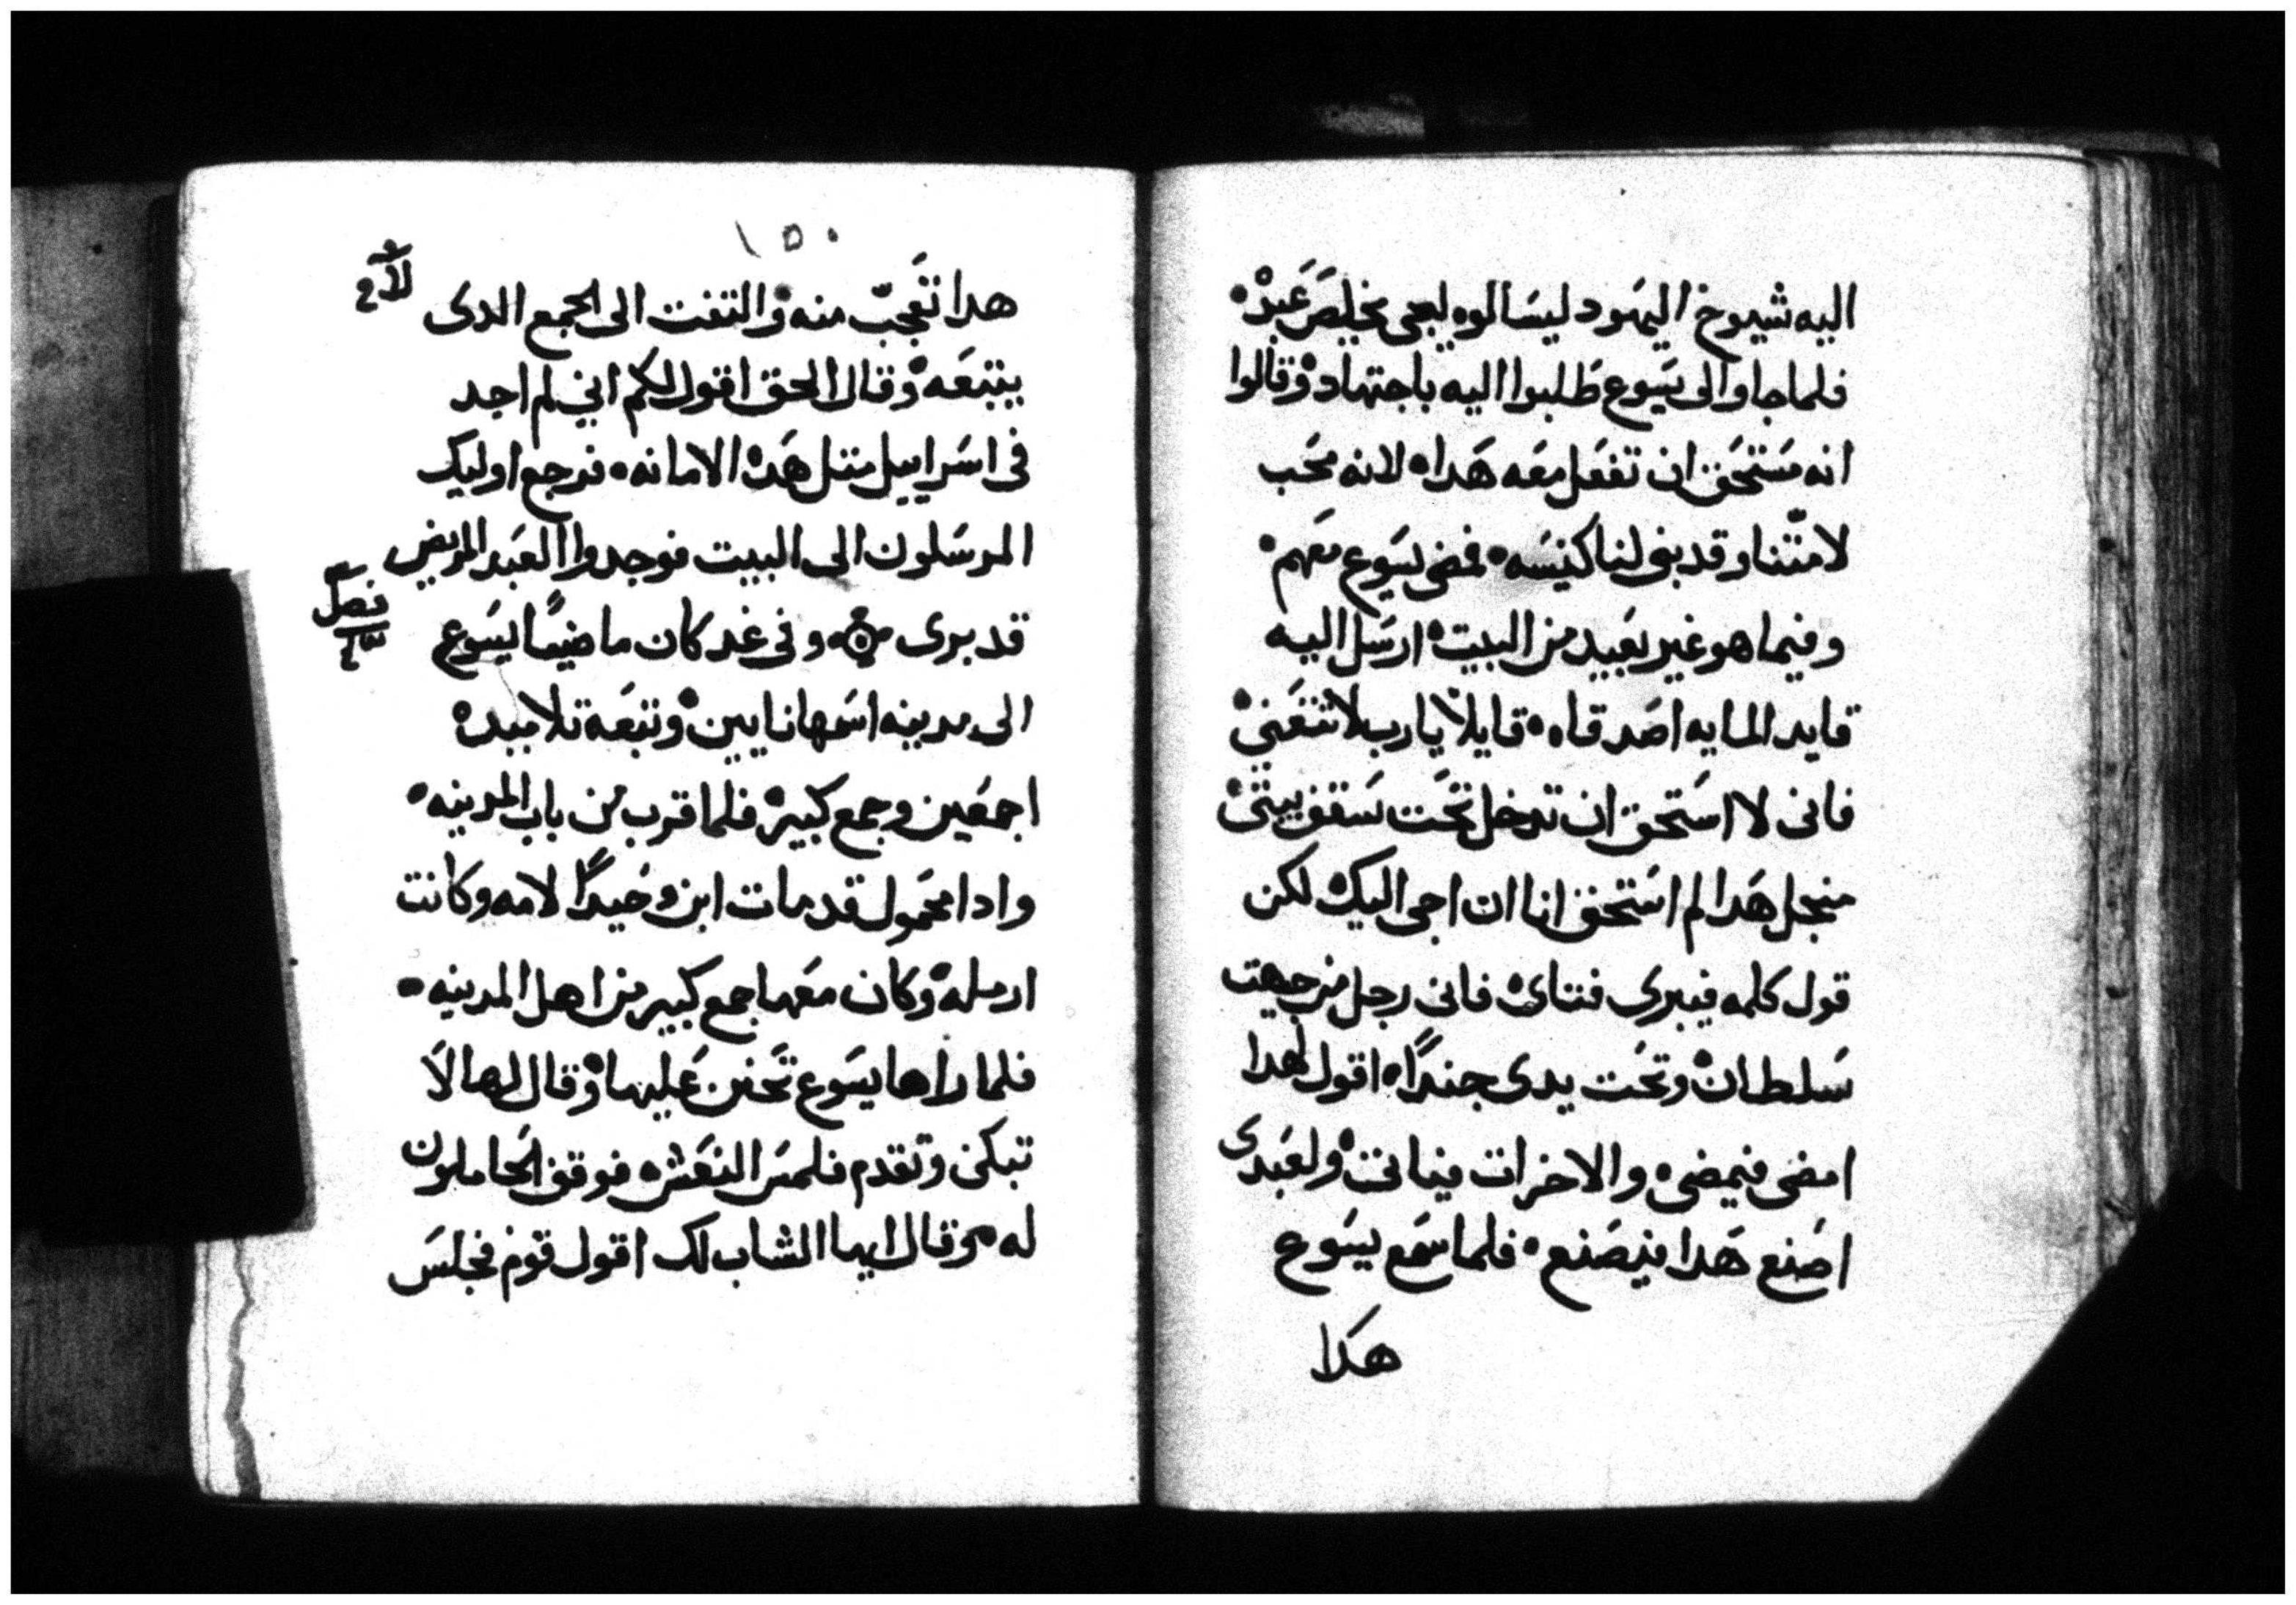 اليه شيوخ اليهود ليسالوه ليجى يخلص عبده
فلما جاوا الى يسوع طلبوا اليه باجتهاد وقالوا
انه مستحق ان تفعل معه هدا لانه محب
لامتنا وقد بنى لنا كنيسه فمضى يسوع معهم
وفيما هو غير بعيد من البيت ارسل اليه
قايد المايه اصدقاه قايلا يارب لا تتعنى
فانى لا استحق ان تدخل تحت سقف بيتى
منجل هدا لم استحق انا ان اجى اليك لكن
قول كلمه فيبرى فتاى فانى رجل من جهت
سلطان وتحت يدى جندا اقول لهدا
امضى فيمضى والاخر ات فياتى ولعبدى
اصنع هدا فيصنع فلما سمع يسوع
هدا
١٥٠
هدا تعجب منه والتفت الى الجمع الدى
يتبعه وقال الحق اقول لكم انى لم اجد
فى اسراييل متل هده الامانه فرجع اوليك
المرسلون الى البيت فوجدوا العبد المريض
قد برى وفى غد كان ماضيا يسوع
فصل
الى مدينه اسمها نايين وتبعه تلاميده
اجمعين وجمع كبير فلما قرب من باب المدينه
وادا محمول قد مات ابن وحيدا لامه وكانت
ارمله وكان معها جمع كبير من اهل المدينه
فلما راها يسوع تحنن عليها وقال لها لا
تبكى وتقدم فلمس النعش فوقف الحاملون
له وقال ايها الشاب لك اقول قوم فجلس